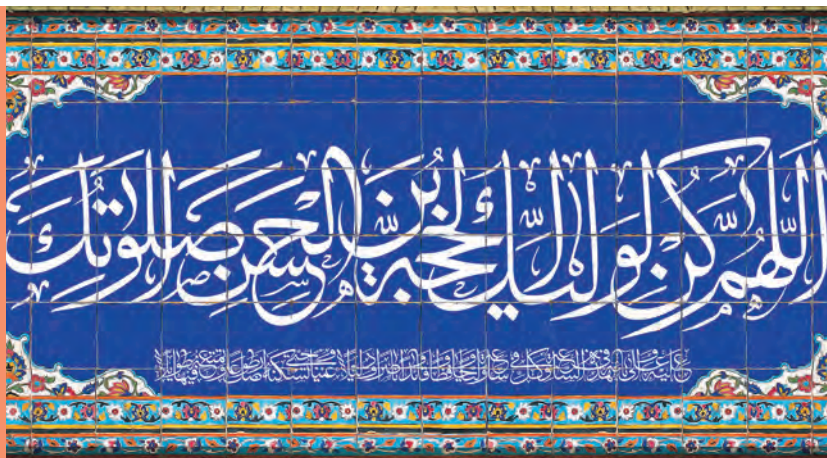 اللّهُمَّ كُن لِوَلیِّكَ الحُجَّةِ بْنِ الحَسَنِ صَلَواتُكَ
عَلَیهِ وَعَلی آبائِهِ فی هذِهِ السّاعَةِ وَفی كُلِّ ساعَةٍ وَلیّاً وَحافِظاً وَقائِداً وَناصِراً وَدَلیلاً وَعَیناً حَتّی تُسكِنَهُ اَرضَكَ طَوعاً وَتُمَتِّعَهُ فیها طَویلاً